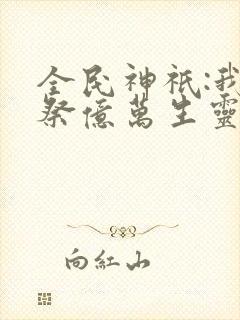 全民神祇:我
祭億萬生靈
向紅山